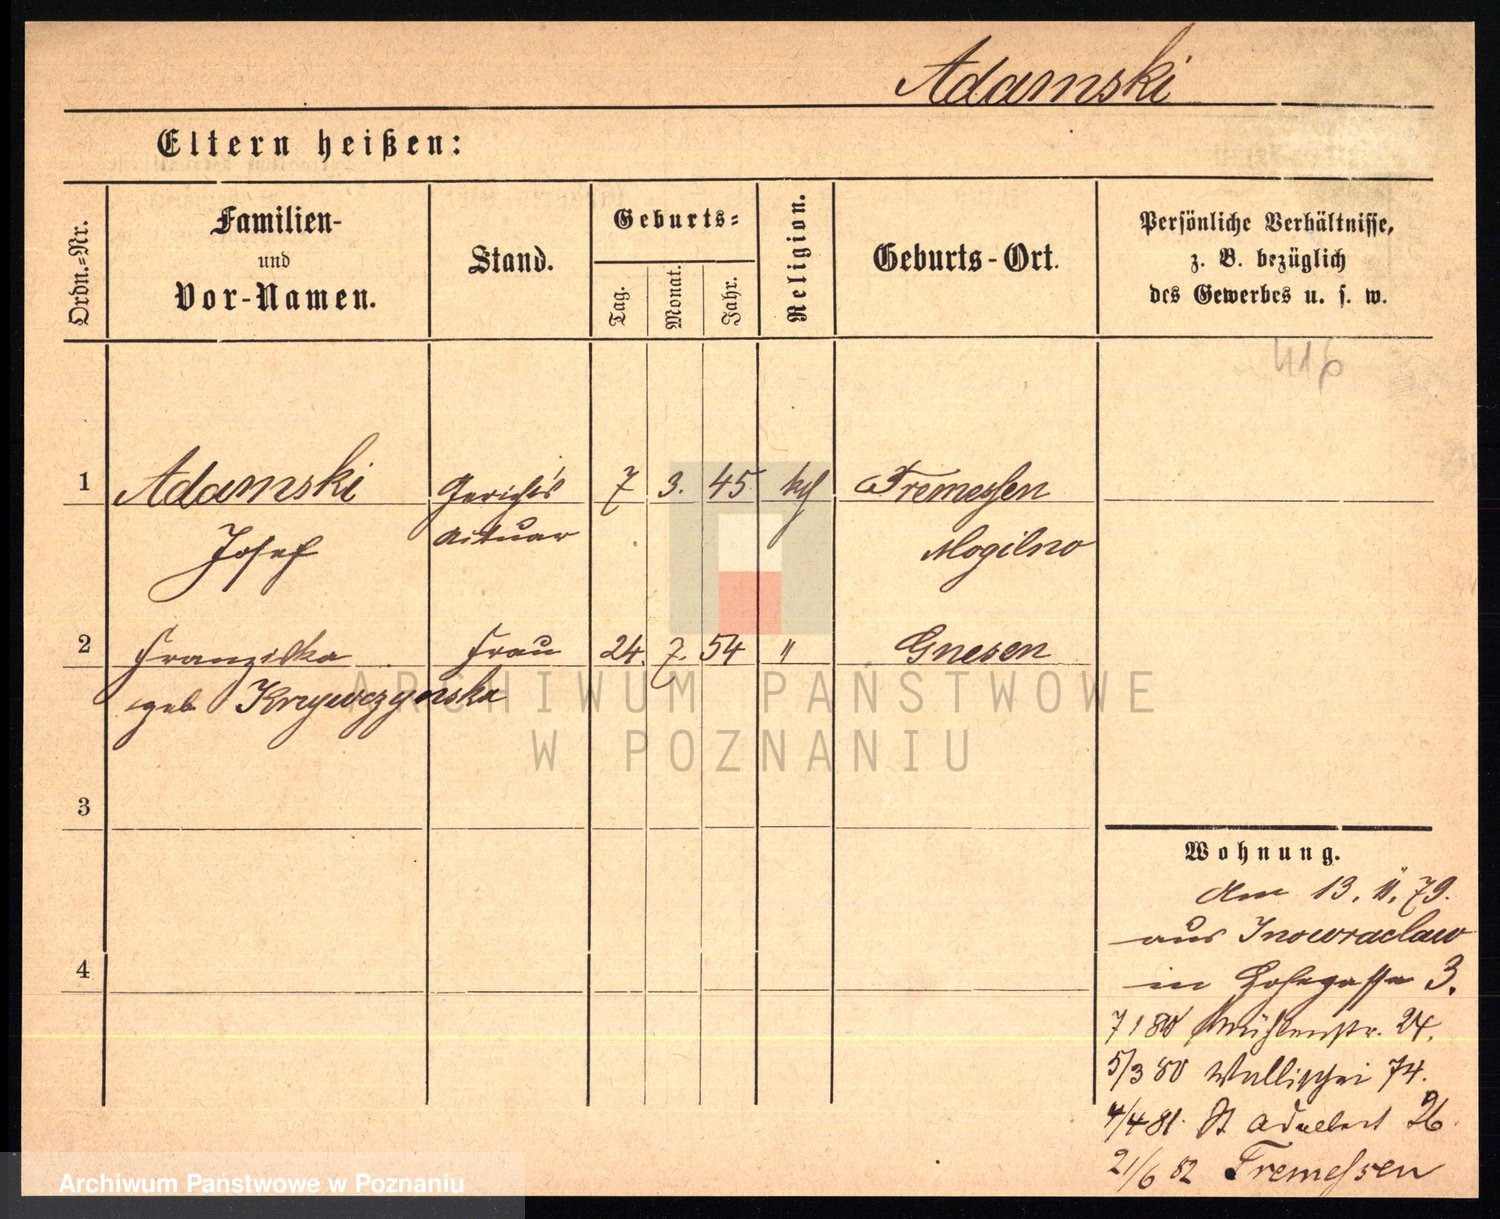 Adamski
Eltern heißen:
Ordn.-Nr.
Familien-
und
Vor-Namen.
Stand.
Geburts-
Tag.
Monat.
Jahr.
Religion.
Geburts-Ort.
Persönliche Verhältnisse,
z. B. bezüglich
des Gewerbes u. s. w.
416
1 Adamski Gerichts 7 3. 45 kth Tremessen
Josef Aktuar Mogilno
2 Franziska Frau 24. 7. 54 " Gnesen
geb Krzywczynska
ARCHIWUM PAŃSTWOWE
W POZNANIU
3
4
Wohnung.
Am 13. 11. 79.
aus Inowraclaw
in Hohegasse 3.
7 1 80 Mühlenstr. 24.
5/3 80 Wallischei 74.
4/4 81. St Adalbert 26.
21/6 82 Tremessen
Archiwum Państwowe w Poznaniu